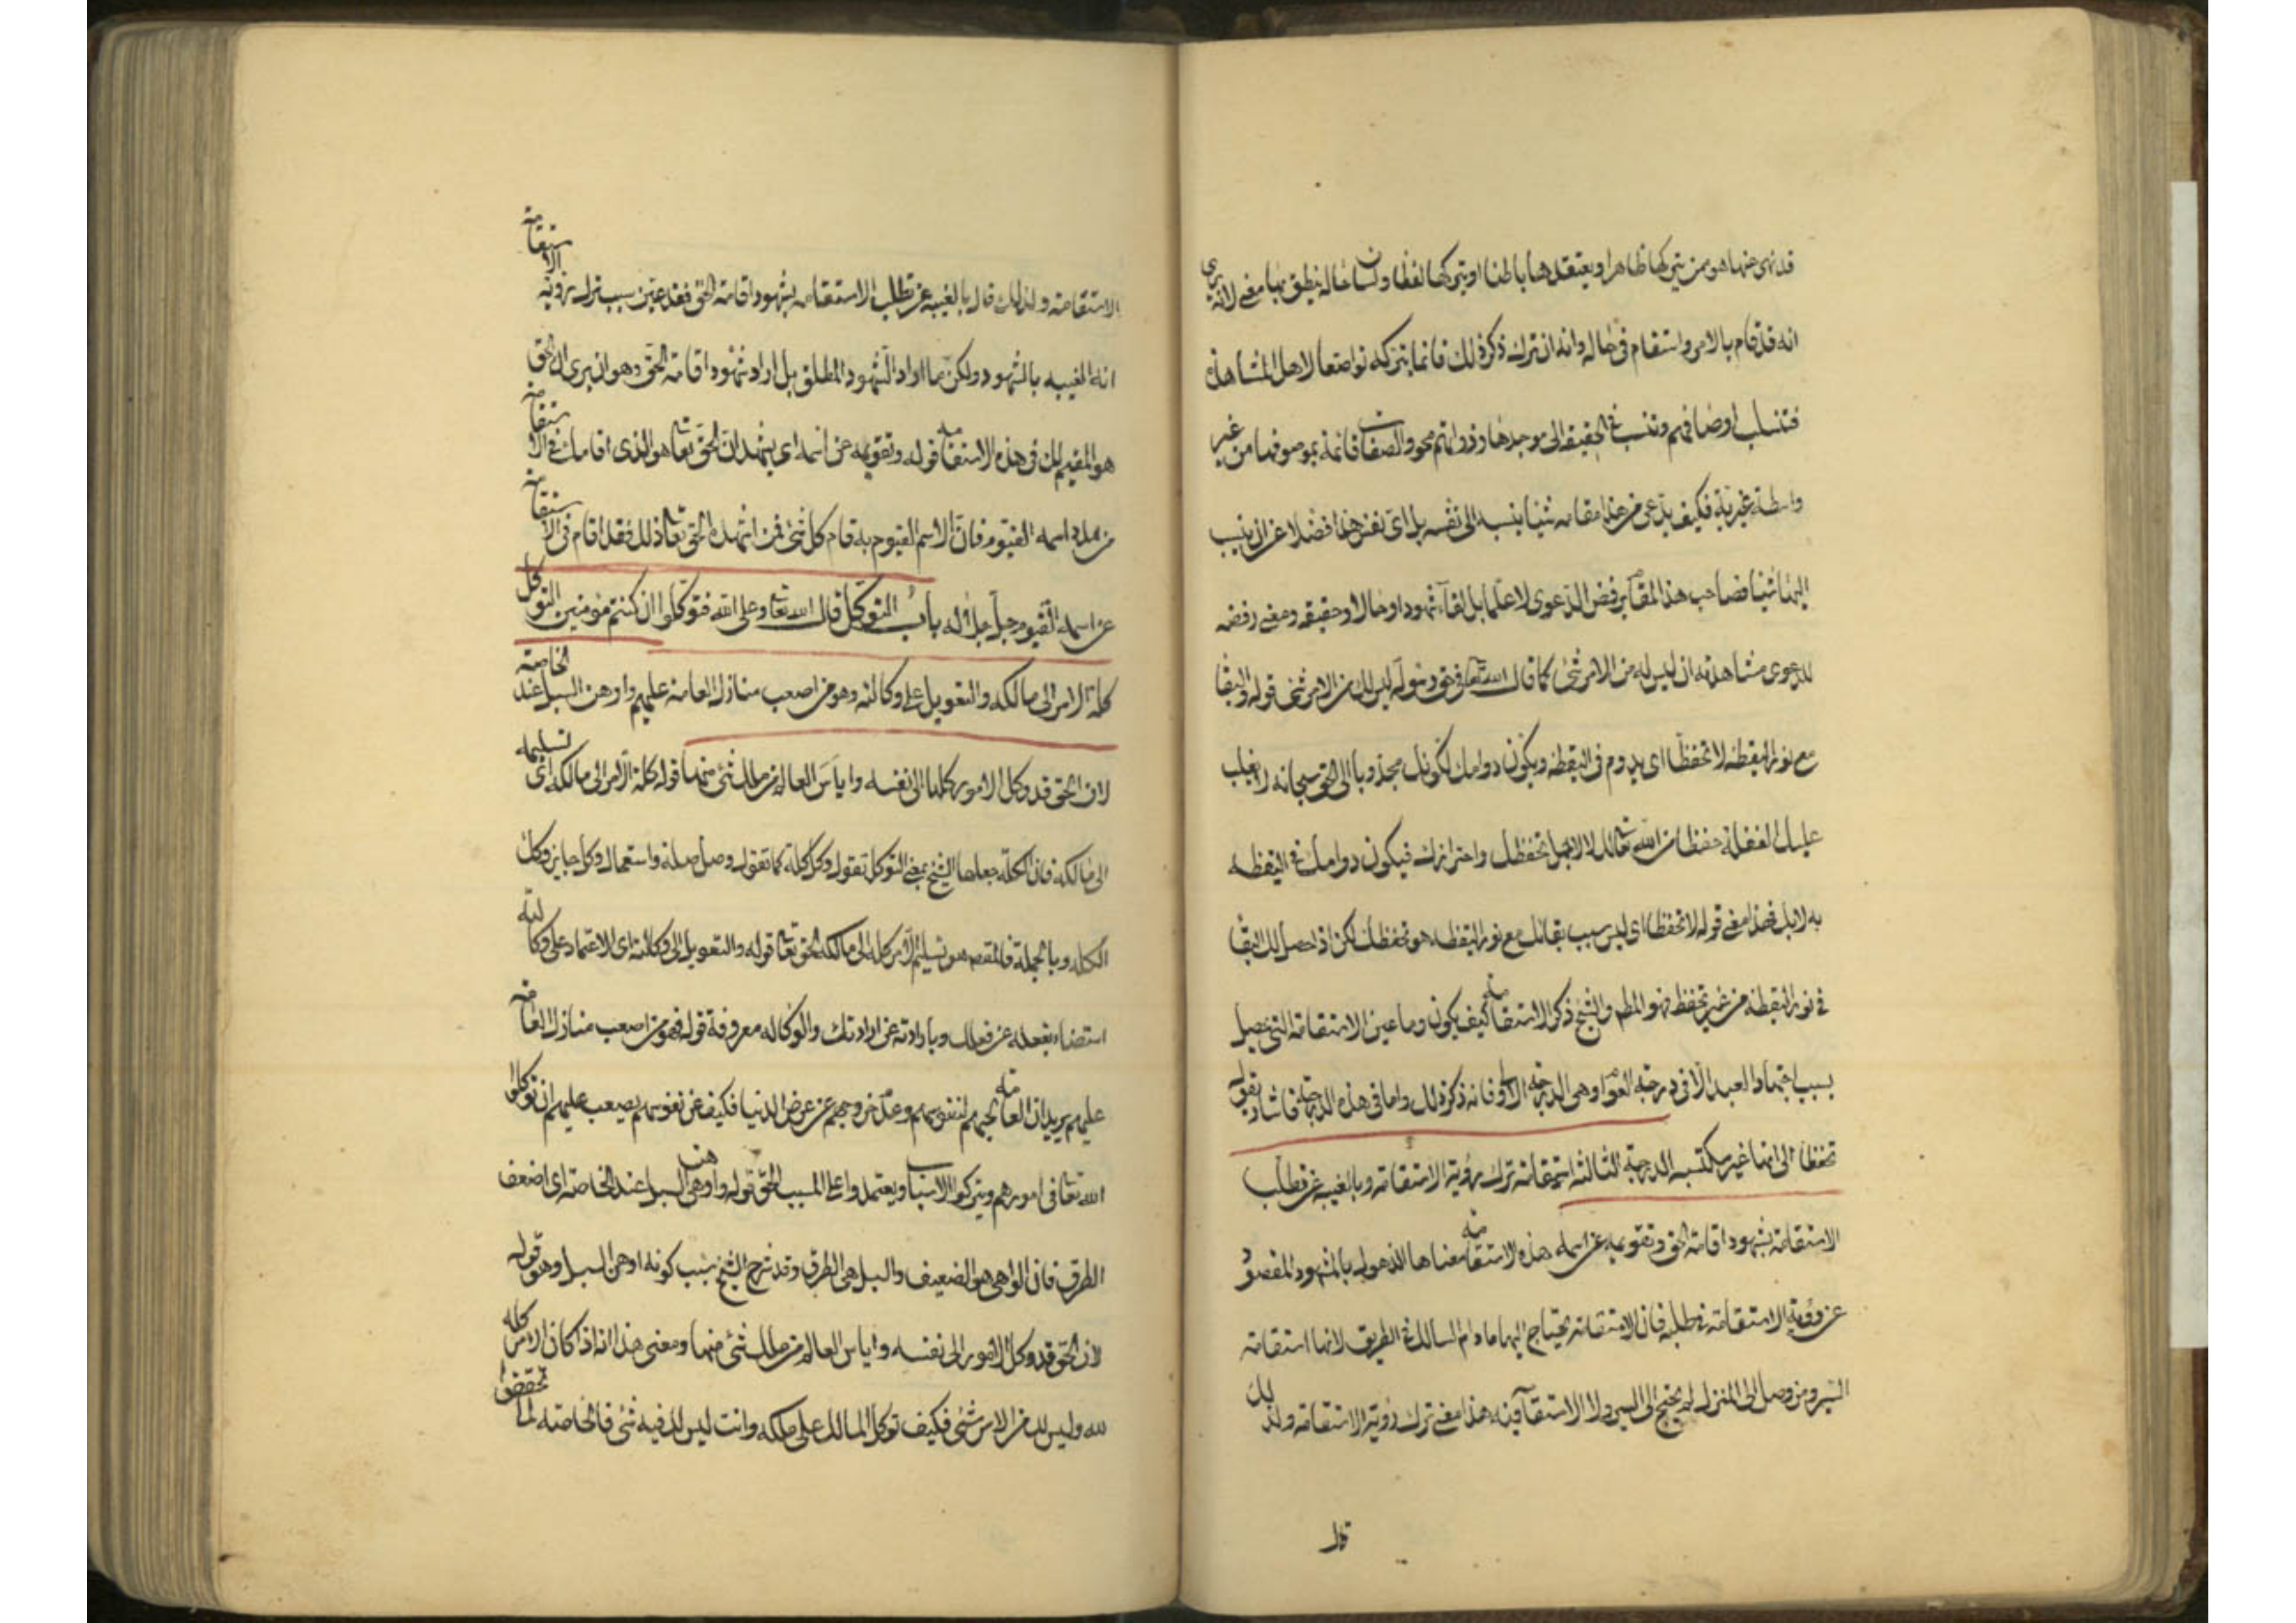 قد نهى عنها هو ممن يتركها ظاهرا ويعتقدها باطنا او يتركها لفظا ولسان حاله ينطق بها معنى لانه يرى
انه قد قام بالامر واستقام فى حاله وانه ان ترك ذكر ذلك فانما يتركه تواضعا لاهل المشاهدة
فتنسلب اوصافهم وتنسب فى الحقيقة الى موجدها وذواتهم محو والصفات قائمة بموصوفها من غير
واسطة غيرية فكيف يدعى من هذا مقامه شيئا ينسبه الى نفسه بل اى نفس هنا فضلا عن ان ينسب
اليها شيئا فصاحب هذا المقام يرفض الدعوى لا علما بل لقاء شهودا وحالا وحقيقة ومعنى رفضه
للدعوى مشاهدته ان ليس له من الامر شئ كما قال الله تعالى فى حق رسوله ليس لك من الامر شئ قوله والبقا
مع نور اليقظه لا تحفظا اى يدوم فى اليقظه ويكون دوامك لكونك مجذوبا الى الحق سبحانه لا يغلب
عليك الغفلة حفظا من الله تعالى لك لا لاجل تحفظك واحترازك فيكون دوامك فى اليقظه
به لا بك فهذا معنى قوله لا تحفظا اى ليس سبب بقائك مع نور اليقظه هو تحفظك لكن اذا حصل لك البقا
فى نور اليقظه من غير تحفظ فهو المطلوب والشيخ ذكر الاستقامة كيف يكون وما عين الاستقامة التى تحصل
بسبب اجتهاد العبد الا فى درجة العوام وهى الدرجة الاولى فانه ذكر ذلك واما فى هذه الدرجة فاشار بقوله
تحفظا الى انها غير مكتسبه الدرجة الثالثه استقامة ترك رؤية الاستقامة وبالغيبه عن تطلب
الاستقامة بشهود اقامة الحق وتقويمه عن اسمه هذه الاستقامة معناها الذهول بالمشهود المقصود
عن رؤية الاستقامة وطلبها فان الاستقامة يحتاج اليها ما دام السالك فى الطريق لانها استقامة
السير ومن وصل الى المنزل لم يحتج الى السير ولا الاستقامة فيه هذا معنى ترك رؤية الاستقامة ولذلك
قال
الاستقامة ولذلك قال بالغيبه عن تطلب الاستقامه بشهود اقامة الحق فقد عين سبب ترك رؤية الاستقامة
انه الغيبه بالشهود ولكن ما اراد الشهود المطلق بل اراد شهود اقامة الحق وهو ان يرى ان الحق
هو المقيم لك فى هذه الاستقامة قوله وتقويمه عن اسمه اى يشهد ان الحق تعالى هو الذى اقامك فى الاستقامة
من مدد اسمه القيوم فان الاسم القيوم به قام كل شئ فمن اشهده الحق تعالى ذلك فقد اقام فى الاستقامة
عن اسمه القيوم جل جلاله باب التوكل قال الله تعالى وعلى الله فتوكلوا ان كنتم مؤمنين التوكل
كلة الامر الى مالكه والتعويل على وكالته وهو من اصعب منازل العامة عليهم واوهن السبل عند الخاصة
لان الحق قد وكل الامور كلها الى نفسه واياس العالم من ملك شئ منها قوله كلة الامر الى مالكه اى تسليمه
الى مالكه فان الكلة جعلها الشيخ بمعنى التوكل تقول وكل كلة كما تقول وصل صلة واستعمال وكل جايز وكل
الكله وبالجملة فالمقصود هو تسليم الامر كله الى مالكه الحق تعالى قوله والتعويل الى وكالته اى الاعتماد على وكالته
استغناء بفعله عن فعلك وبارادته عن ارادتك والوكاله معروفة قوله فهو من اصعب منازل العامة
عليهم يريد ان العامة لحبهم لنفوسهم وعدم خروجهم عن عرض الدنيا فكيف عن نفوسهم يصعب عليهم ان توكلوا
الله تعالى فى امورهم ويتركوا الاسباب ويعتمدوا على المسبب الحق قوله واوهن السبل عند الخاصة اى اضعف
الطرق فان الواهى هو الضعيف والسبل هى الطرق وقد شرح الشيخ سبب كونه اوهن السبل وهو قوله
لان الحق قد وكل الامور الى نفسه واياس العالم من ملك شئ منها ومعنى هذا انه اذا كان الامر كله
لله وليس لك من الامر شئ فكيف توكل المالك على ملكه وانت ليس لك فيه شئ فالخاصة لما تحققوا